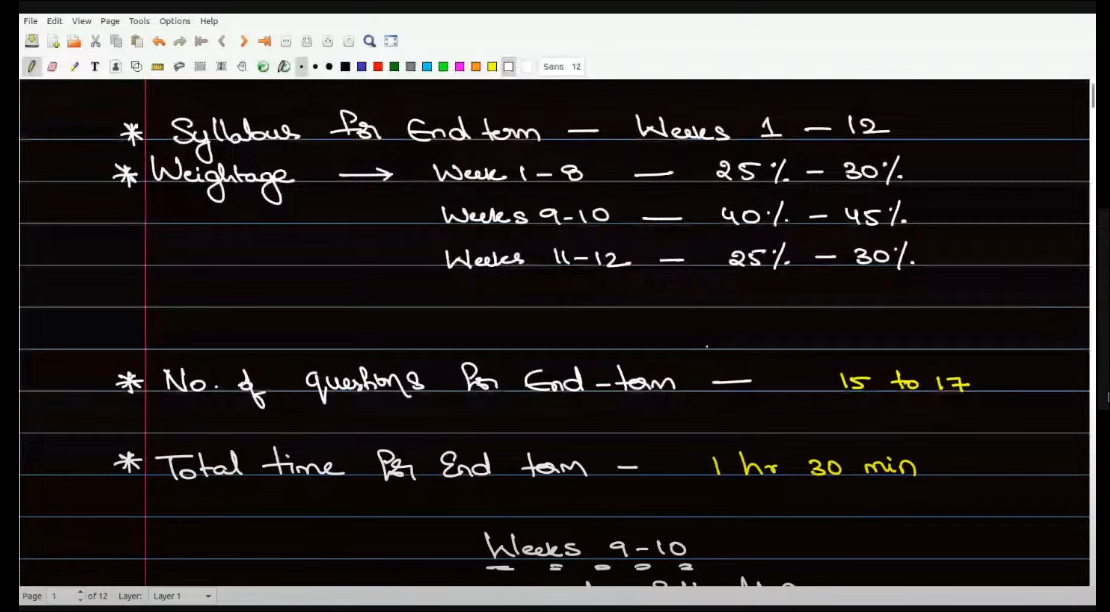 File Edit View Page Tools Options Help
T Sans 12
* Syllabus for End term — Weeks 1 – 12
* Weightage → Week 1 – 8 — 25% – 30%
Weeks 9-10 — 40% – 45%
Weeks 11-12 — 25% – 30%
* No. of questions for End-term — 15 to 17
* Total time for End term – 1 hr 30 min
Weeks 9-10
Page 1 of 12 Layer: Layer 1